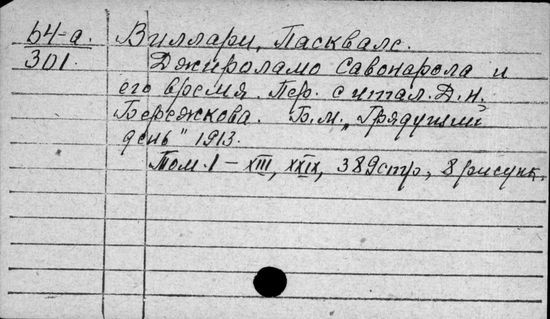 54-а. Виллари, Пасквале.
301. Джироламо Савонарола и
его время. Пер. с итал. Д. Н.
Бережкова. Б.м. „Грядущий
день" 1913.
Том. I – XIII, XXIX, 389 стр., 8 рисунк.